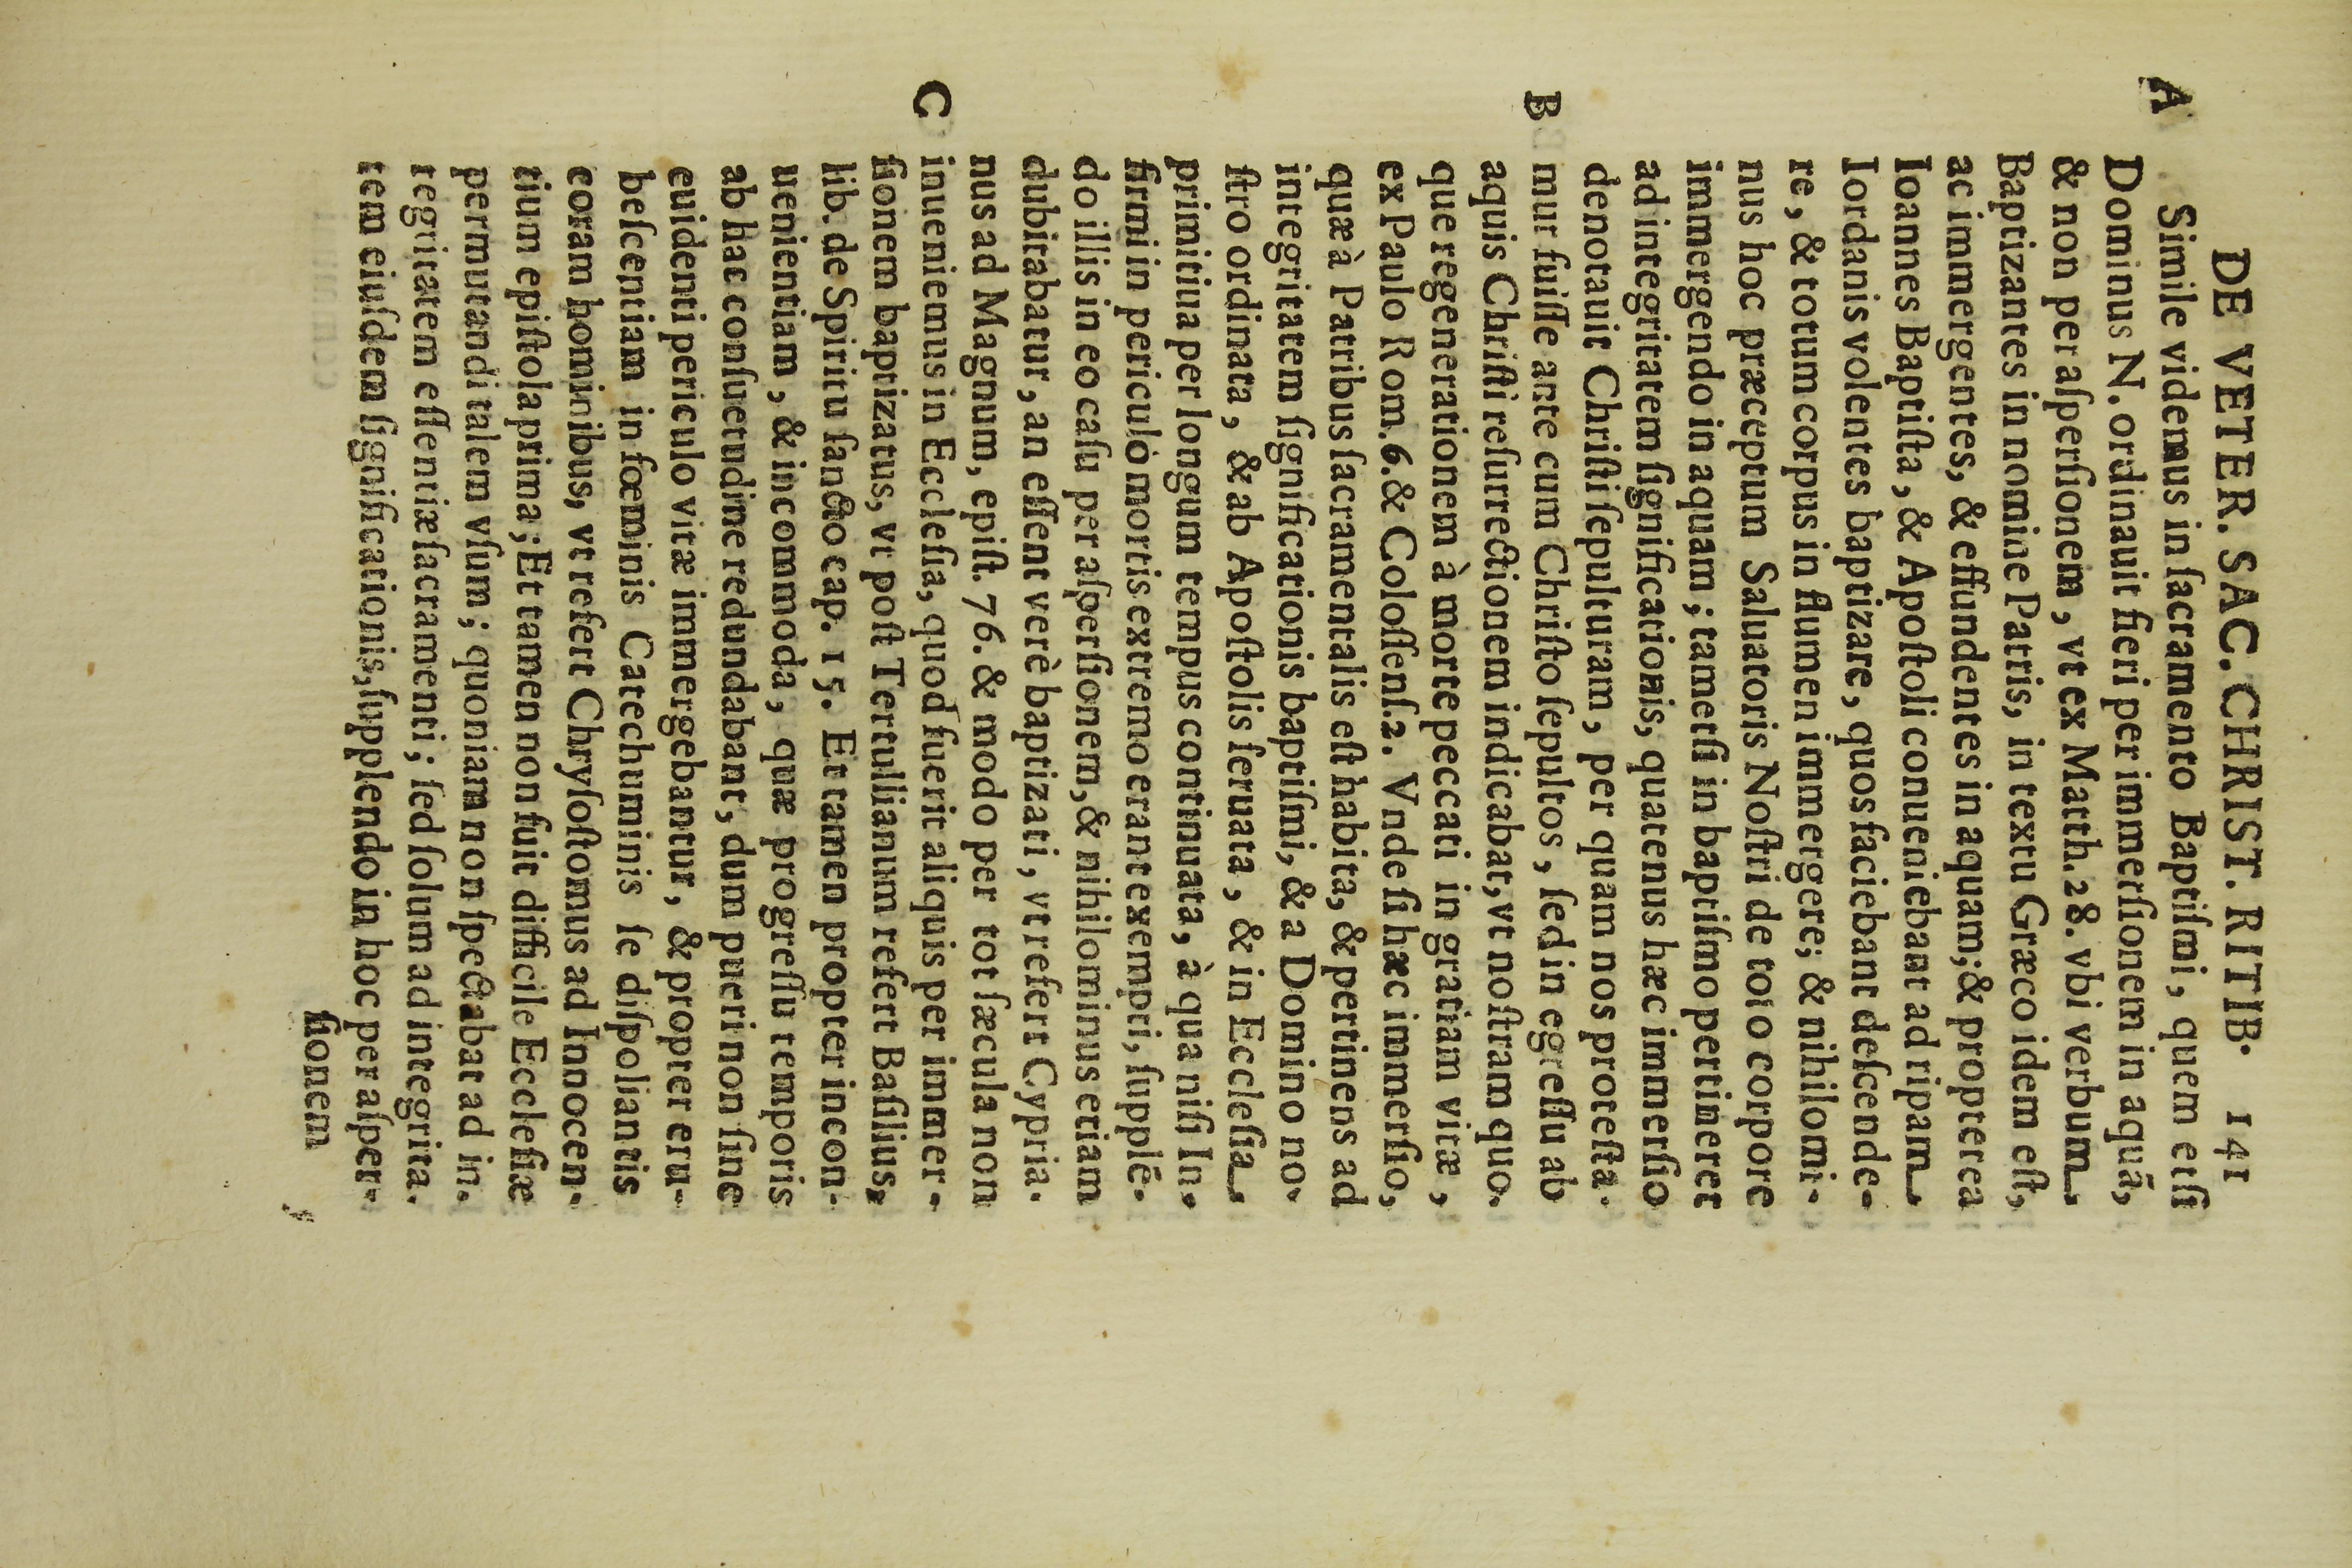 DE VETER. SAC. CHRIST. RITIB. 141
A Simile videmus in ſacramento Baptiſmi, quem etſi
Dominus N. ordinauit fieri per immerſionem in aquã,
& non per aſperſionem, vt ex Matth. 28. vbi verbum
Baptizantes in nomine Patris, in textu Græco idem eſt,
ac immergentes, & effundentes in aquam; & propterea
Ioannes Baptiſta, & Apoſtoli conueniebant ad ripam
Iordanis volentes baptizare, quos faciebant deſcende-
re, & totum corpus in flumen immergere; & nihilomi-
nus hoc præceptum Saluatoris Noſtri de toto corpore
immergendo in aquam; tametſi in baptiſmo pertineret
ad integritatem ſignificationis, quatenus hæc immerſio
denotauit Chriſti ſepulturam, per quam nos proteſta-
B mur fuiſſe ante cum Chriſto ſepultos, ſed in egreſſu ab
aquis Chriſti reſurrectionem indicabat, vt noſtram quo-
que regenerationem à morte peccati in gratiam vitæ,
ex Paulo Rom. 6. & Coloſſenſ. 2. Vnde ſi hæc immerſio,
quæ à Patribus ſacramentalis eſt habita, & pertinens ad
integritatem ſignificationis baptiſmi, & a Domino no-
ſtro ordinata, & ab Apoſtolis ſeruata, & in Eccleſia
primitiua per longum tempus continuata, à qua niſi In-
firmi in periculo mortis extremo erant exempti, ſupplē-
do illis in eo caſu per aſperſionem, & nihilominus etiam
dubitabatur, an eſſent verè baptizati, vt refert Cypria-
nus ad Magnum, epiſt. 76. & modo per tot ſæcula non
C inueniemus in Eccleſia, quod fuerit aliquis per immer-
ſionem baptizatus, vt poſt Tertullianum refert Baſilius,
lib. de Spiritu ſancto cap. 15. Et tamen propter incon-
uenientiam, & incommoda, quæ progreſſu temporis
ab hac conſuetudine redundabant, dum pueri non ſine
euidenti periculo vitæ immergebantur, & propter eru-
beſcentiam in fœminis Catechuminis ſe diſpoliantis
coram hominibus, vt refert Chryſoſtomus ad Innocen-
tium epiſtola prima; Et tamen non fuit difficile Eccleſiæ
permutandi talem vſum; quoniam non ſpectabat ad in-
tegritatem eſſentiæ ſacramenti; ſed ſolum ad integrita-
tem eiuſdem ſignificationis, ſupplendo in hoc per aſper-
ſionem